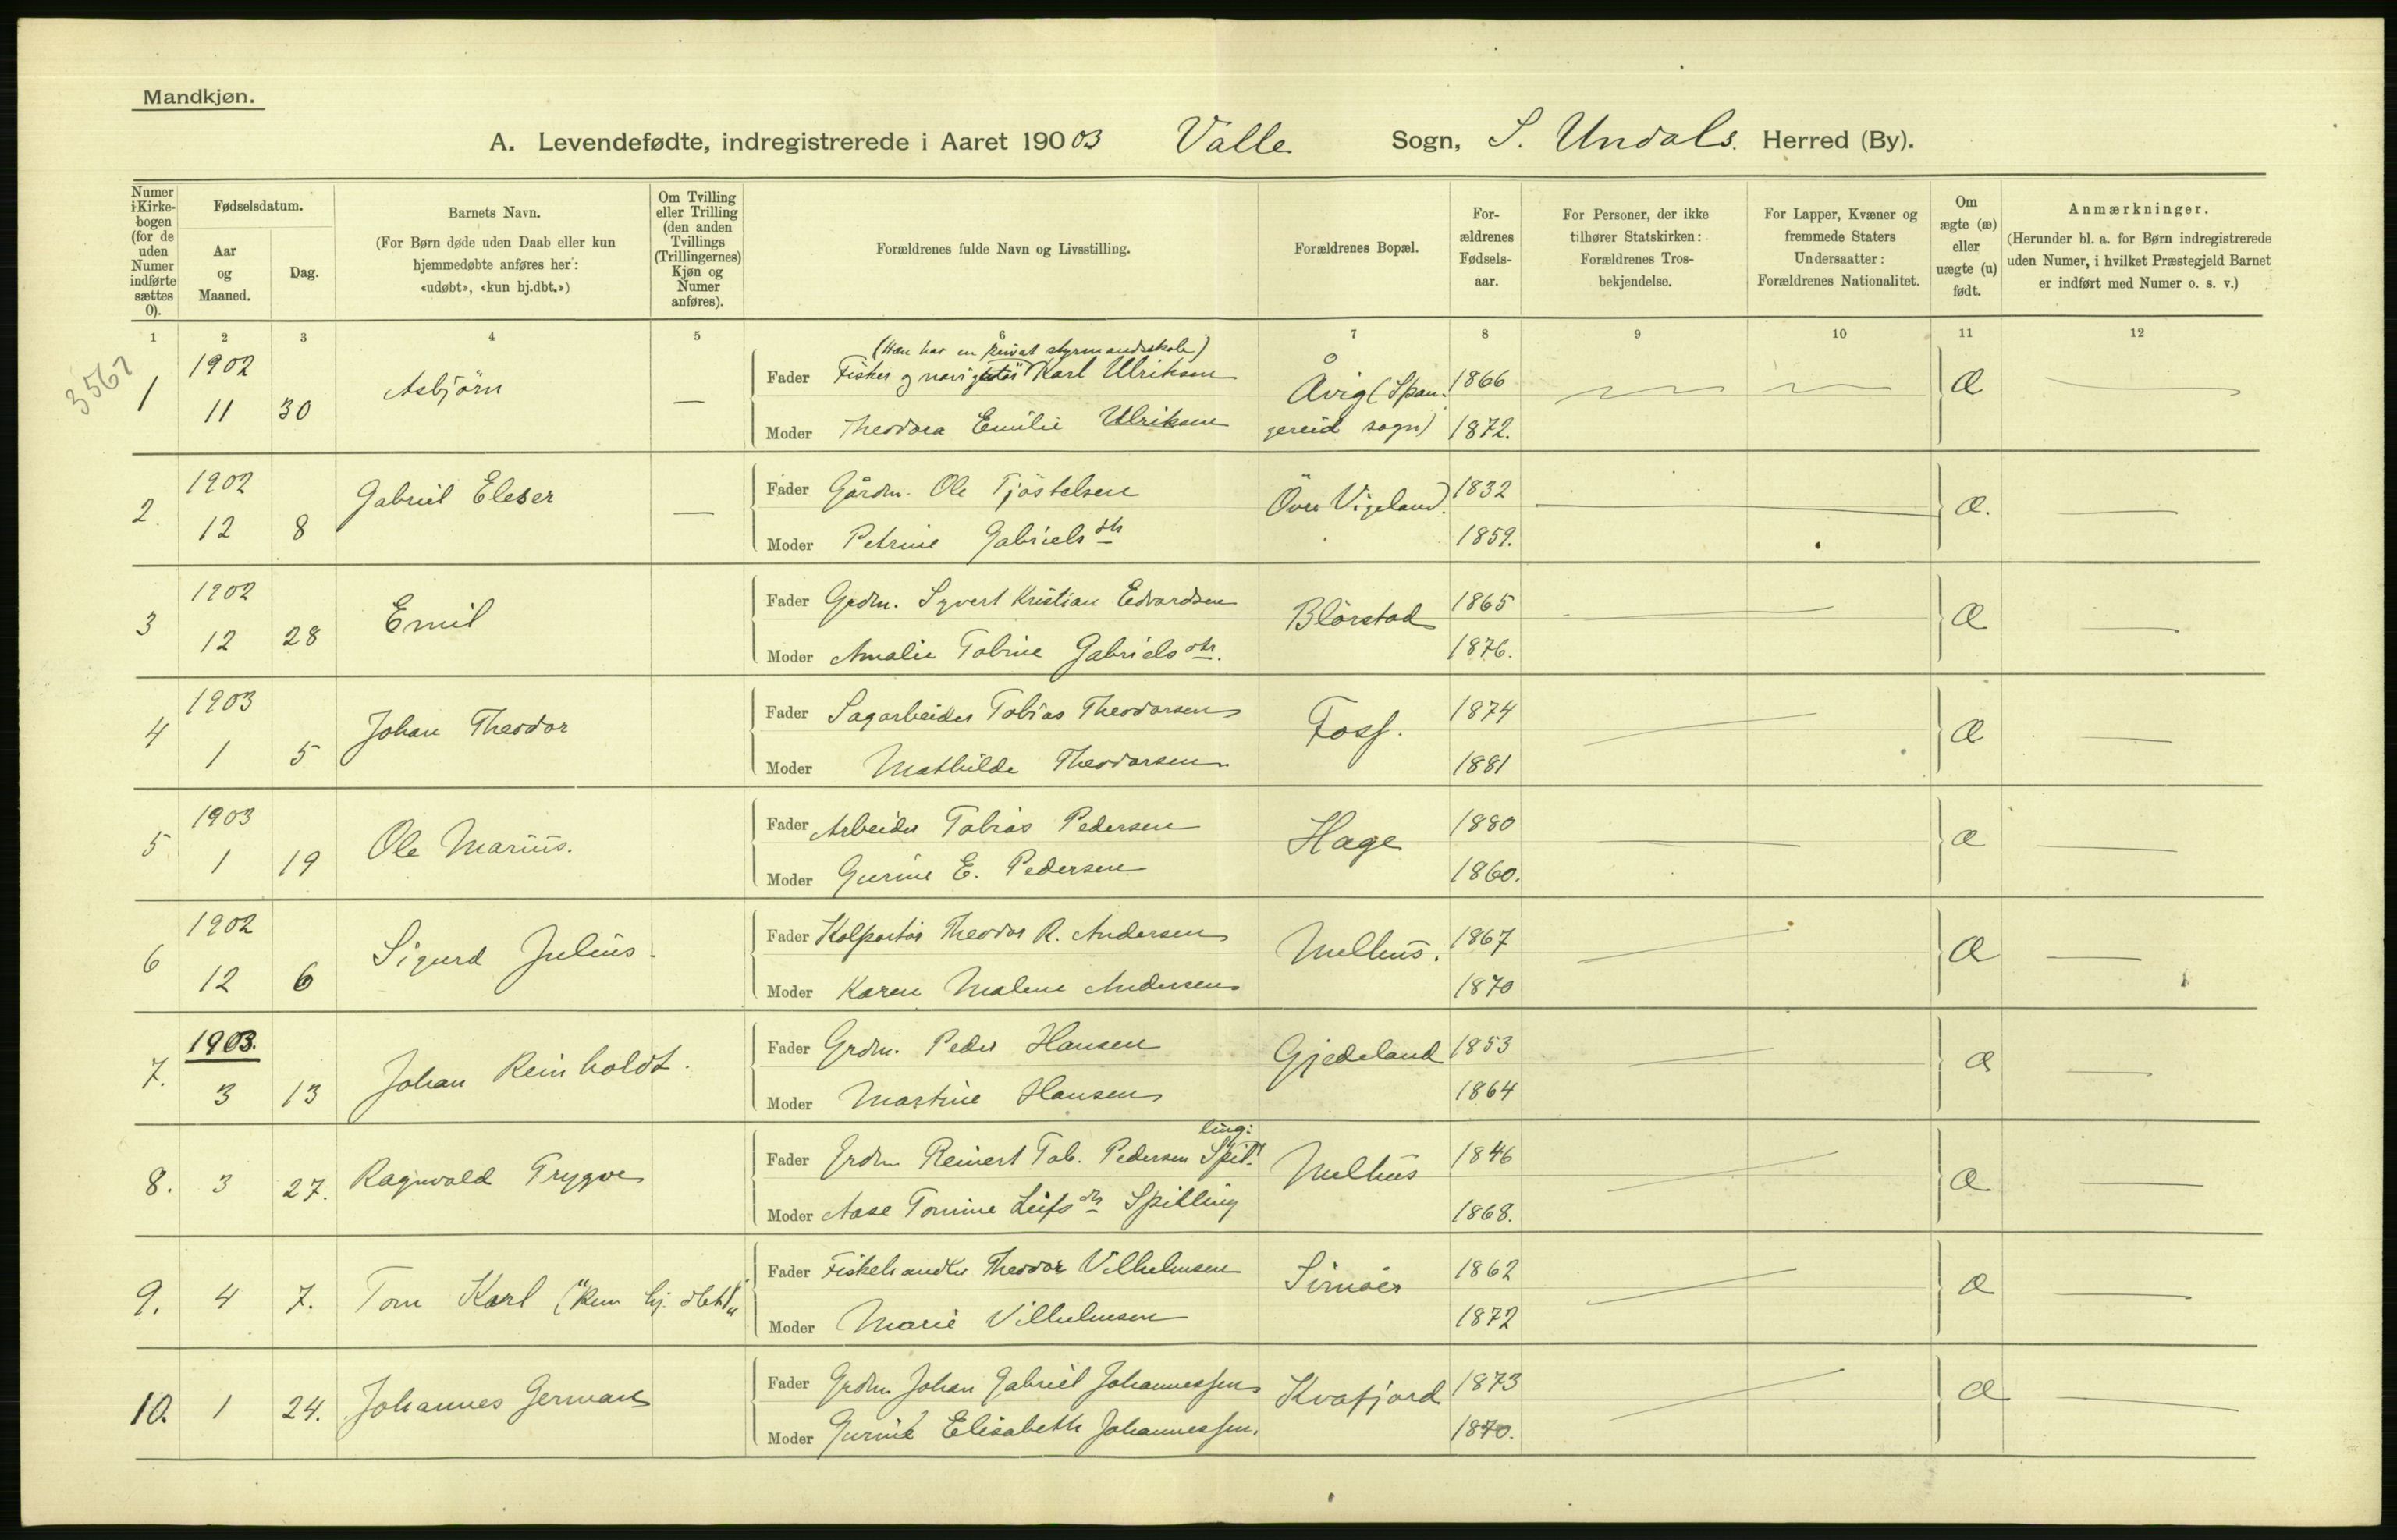 Mandkjøn.
A. Levendefødte, indregistrerede i Aaret 190 03 Valle Sogn, S. Undals. Herred (By).
Numer i Kirke-bogen (for de uden Numer indførte sættes 0).
Fødselsdatum.
Aar og Maaned.
Dag.
Barnets Navn.
(For Børn døde uden Daab eller kun hjemmedøbte anføres her: «udøbt», «kun hj.dbt.»)
Om Tvilling eller Trilling (den anden Tvillings (Trillingernes) Kjøn og Numer anføres).
Forældrenes fulde Navn og Livsstilling.
Forældrenes Bopæl.
For-ældrenes Fødsels-aar.
For Personer, der ikke tilhører Statskirken: Forældrenes Tros-bekjendelse.
For Lapper, Kvæner og fremmede Staters Undersaatter: Forældrenes Nationalitet.
Om ægte (æ) eller uægte (u) født.
Anmærkninger.
(Herunder bl. a. for Børn indregistrerede uden Numer, i hvilket Præstegjeld Barnet er indført med Numer o. s. v.)
1 2 3 4 5 6 7 8 9 10 11 12
3562
(Han har en privat styrmandsskole)
1 1902 Asbjörn — Fader Fisker og navigatör Karl Ulriksen Åvig (Span- 1866 æ
11 30 Moder Theodora Emilie Ulriksen gereid sogn) 1872.
2. 1902 Gabriel Eleser — Fader Gårdm. Ole Tjöstelsen Övre Vigeland. 1832 æ. —
12 8 Moder Petrine Gabrielsdtr 1859.
3 1902 Emil Fader Grdm. Syvert Kristian Edvardsen Blörstad 1865 æ —
12 28 Moder Amalie Tobine Gabrielsdtr. 1876.
4 1903 Johan Theodor Fader Sagarbeider Tobias Theodorsen Foss. 1874 æ —
1 5 Moder Mathilde Theodorsen 1881
5 1903 Ole Marius. Fader Arbeider Tobias Pedersen Hage 1880 æ —
1 19 Moder Gurine E. Pedersen 1860.
6 1902 Sigurd Julius. Fader Kolportör Theodor R. Andersen Melhus. 1867 æ —
12 6 Moder Karen Malene Andersen 1870
7. 1903. Johan Reinholdt. Fader Grdm. Peder Hansen Gjedeland 1853 æ —
3 13 Moder Martine Hansen 1864
ling:
8. 3 27. Ragnvald Trygve Fader Grdm Reinert Tob. Pedersen Spil- Melhus 1846 æ —
Moder Aase Tomine Leifsdtr Spilling 1868.
9. 4 7. Tom Karl ("kun hj. dbt)" Fader Fiskehandler Theodor Vilhelmsen Sirnäs 1862 æ —
Moder Marie Vilhelmsen 1872
10. 1 24. Johannes German Fader Grdm Johan Gabriel Johannessen Kvafjord 1873 æ —
Moder Gurine Elisabeth Johannessen. 1870.